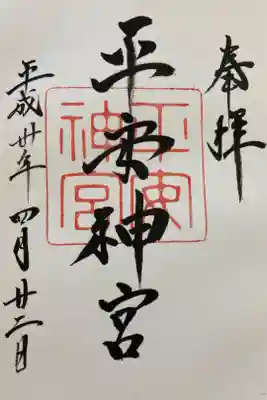 奉拝
平安神宮
平安神宮
平成廿年四月廿二日